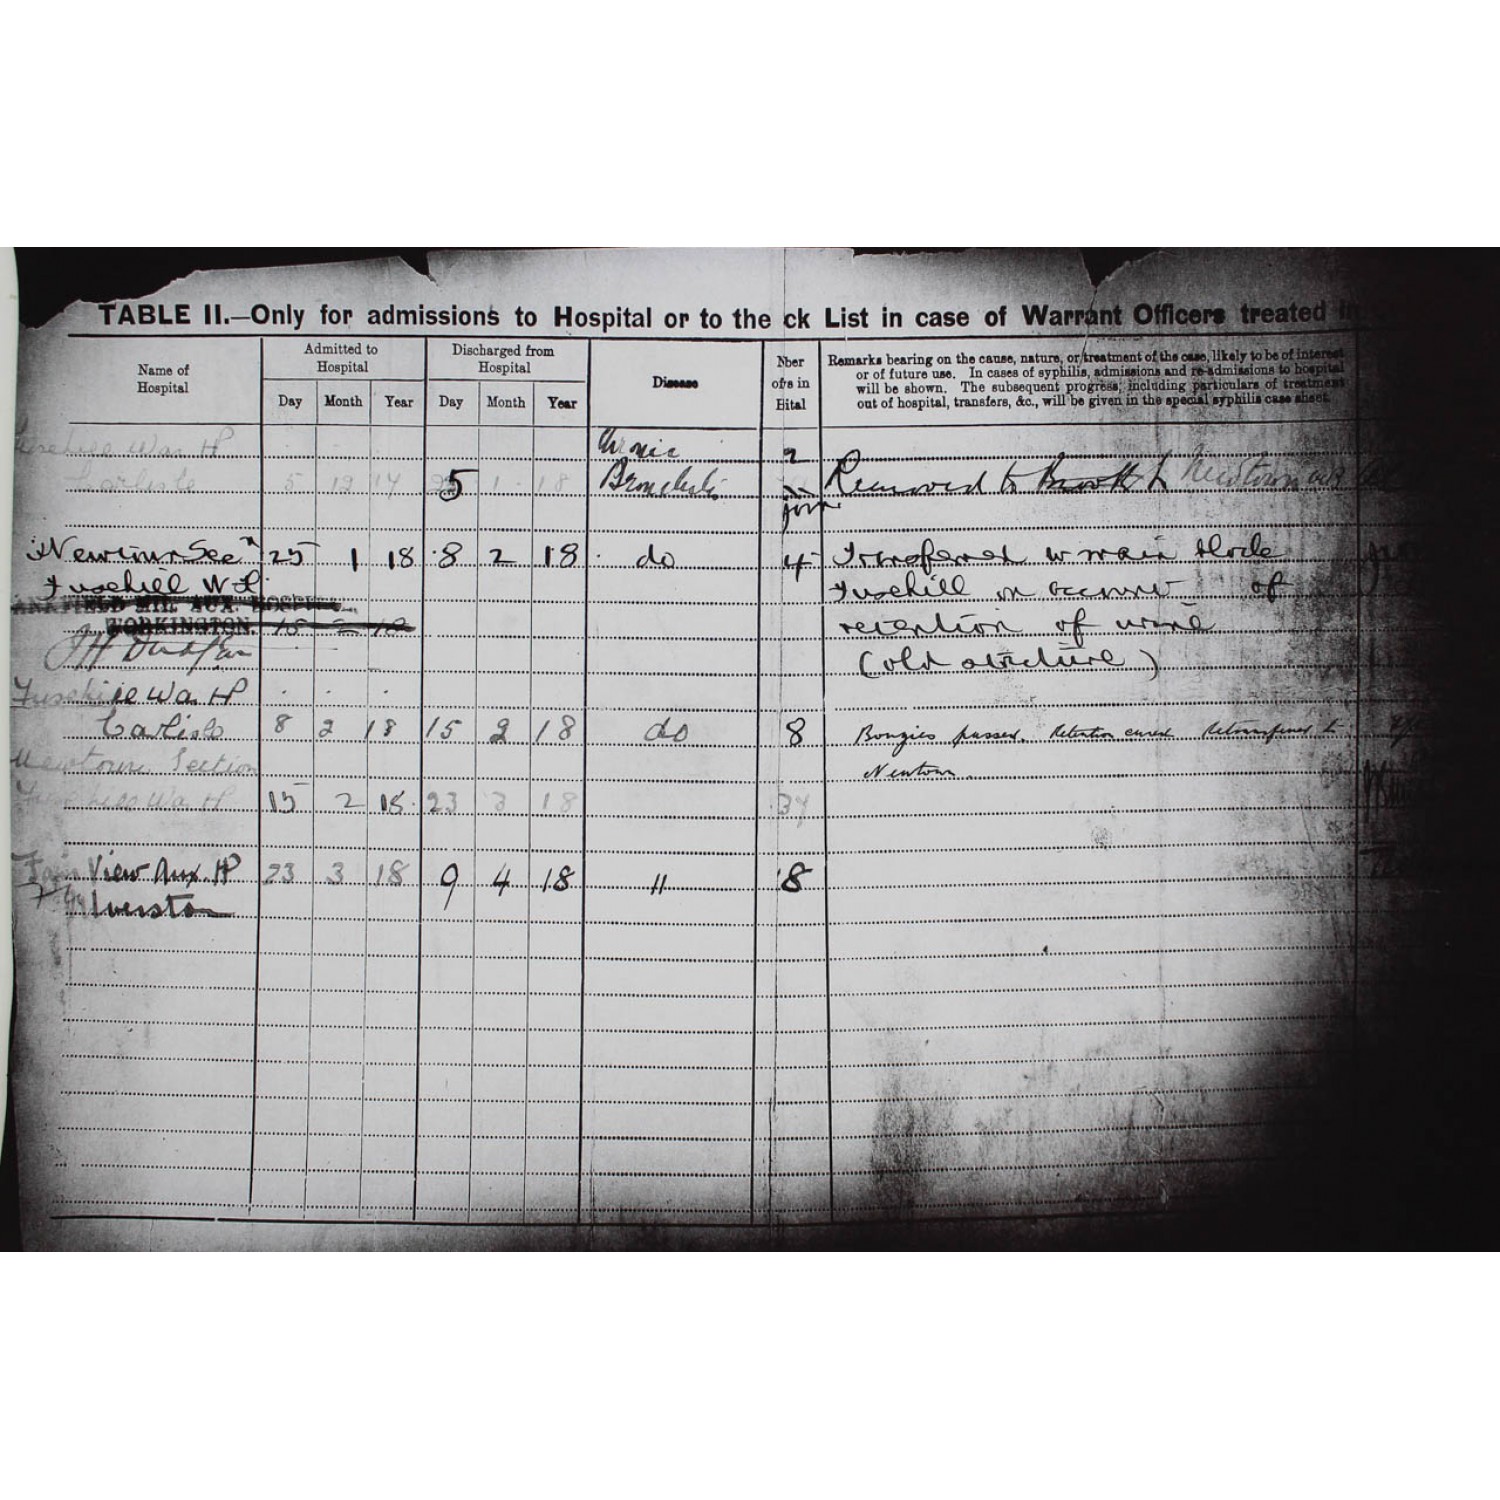 TABLE II.—Only for admissions to Hospital or to the ck List in case of Warrant Officers treated in
Name of Hospital
Admitted to Hospital
Day Month Year
Discharged from Hospital
Day Month Year
Disease
Nber ofs in Hital
Remarks bearing on the cause, nature, or treatment of the case, likely to be of interest
or of future use. In cases of syphilis, admissions and re-admissions to hospital
will be shown. The subsequent progress, including particulars of treatment
out of hospital, transfers, &c., will be given in the special syphilis case sheet.
Fusehill War HP Chronic
Carlisle 5 12 17 5 1 18 Bronchitis Removed to Newtown
Newtown Secn 25 1 18 8 2 18 do 14 Transferred to main block
Fusehill W H Fusehill on account of
BANKFIELD MIL. AUX. HOSPITAL
WORKINGTON. 15 2 18 retention of urine
(old stricture)
Fusehill Wa. HP
Carlisle 8 2 18 15 2 18 do 8 Bougies passed. Retention cured. Retransferred to
Newtown Section Newtown.
Fusehill Wa. HP 15 2 18 23 3 18 37
Fair View Aux. HP 23 3 18 9 4 18 " 18
Ulverston